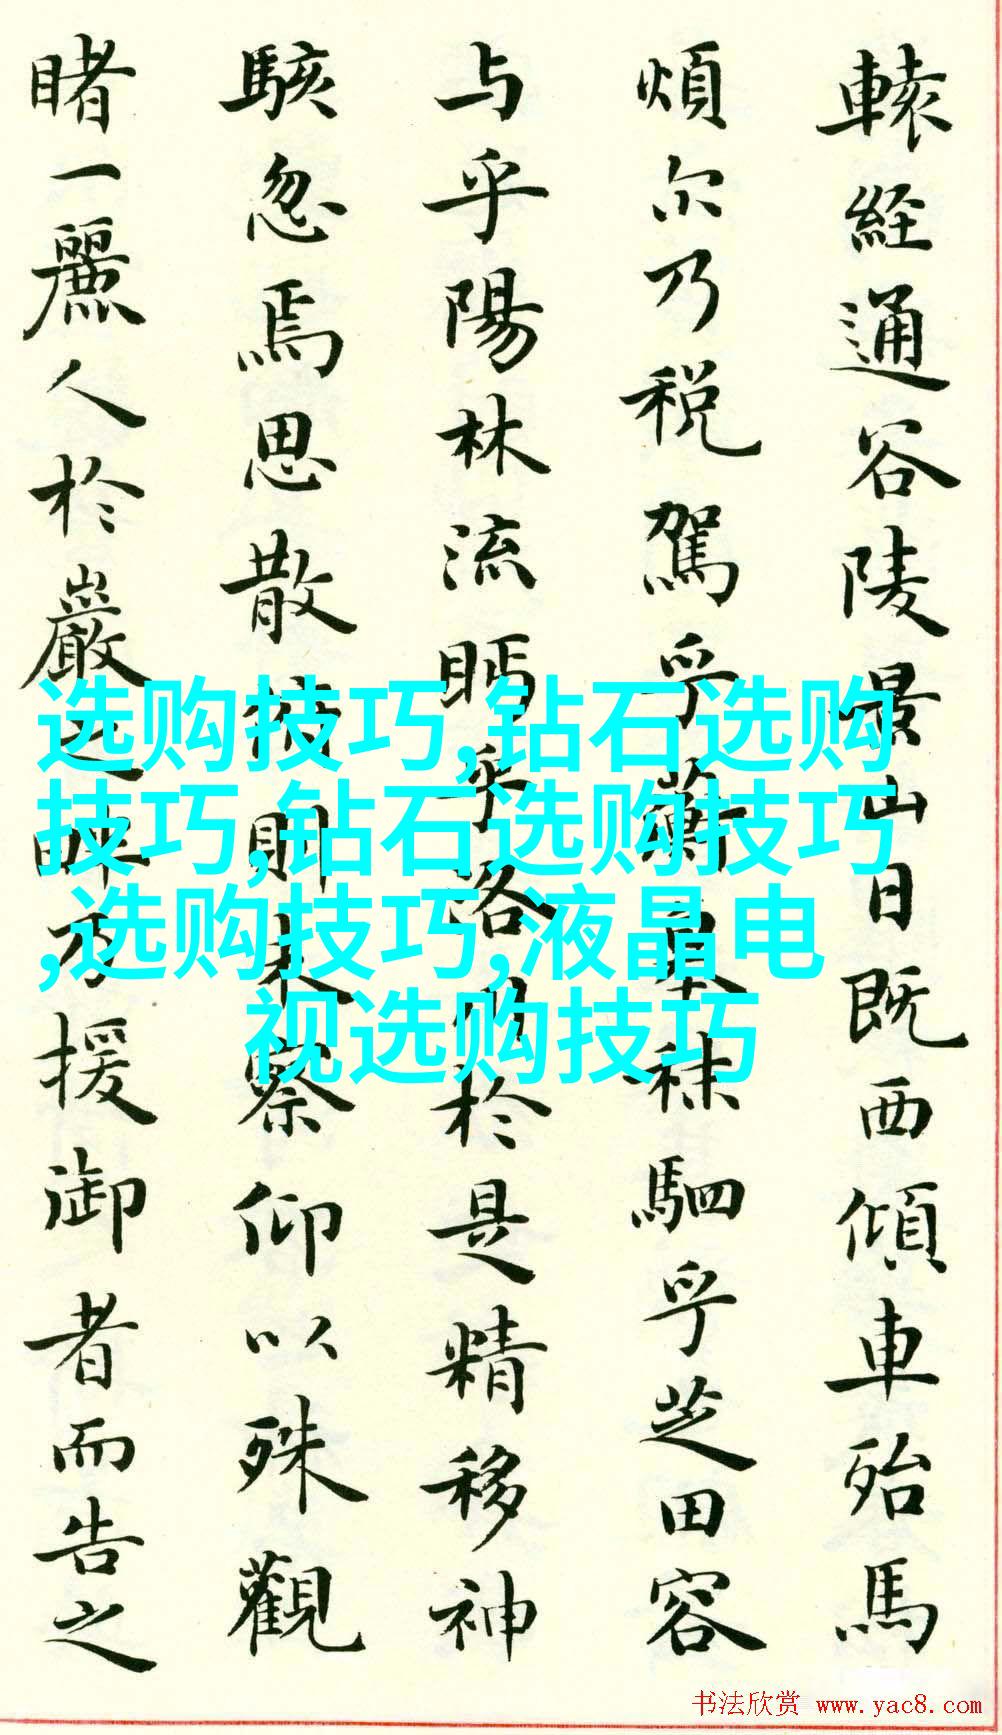 轅經通谷陵景山日既西傾車殆馬
煩尔乃税駕乎蘅皋秣駟乎芝田容
与乎陽林流眄乎洛川於是精移神
駭忽焉思散俯則未察仰以殊觀
睹一麗人於巖之畔乃援御者而告之
选购技巧,钻石选购
技巧,钻石选购技巧
,选购技巧,液晶电
视选购技巧
书法欣赏 www.yac8.com